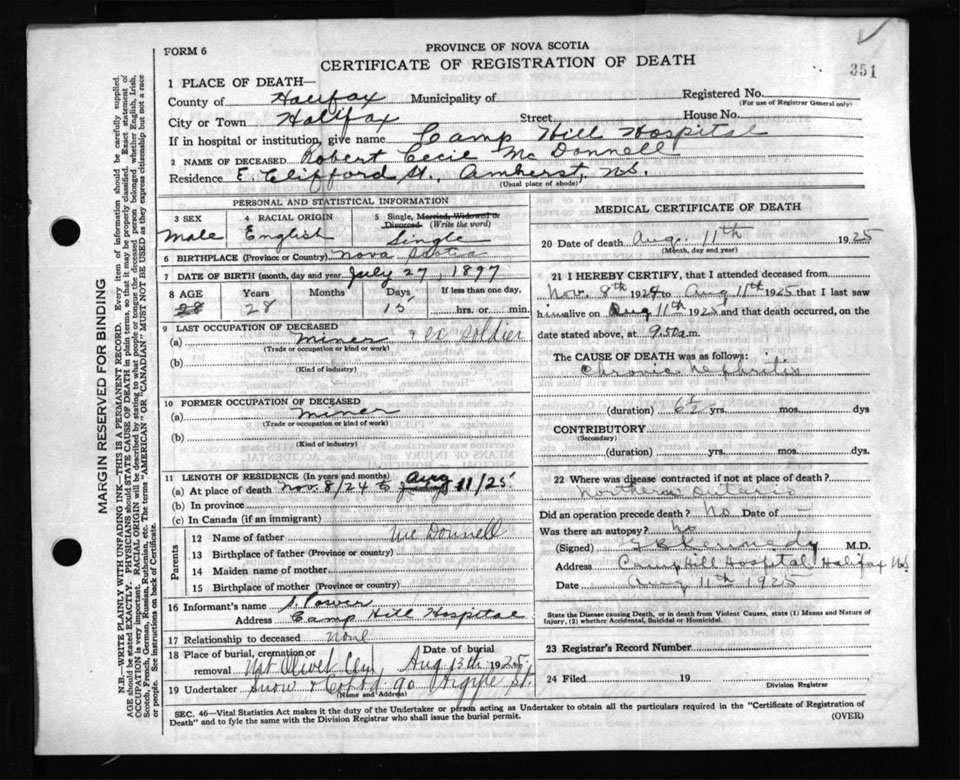 FORM 6
PROVINCE OF NOVA SCOTIA
CERTIFICATE OF REGISTRATION OF DEATH
351
1 PLACE OF DEATH—
County of Halifax Municipality of
Registered No.
(For use of Registrar General only)
City or Town Halifax Street House No.
If in hospital or institution, give name Camp Hill Hospital
2 NAME OF DECEASED Robert Cecil McDonnell
Residence E. Clifford St., Amherst, N.S.
(Usual place of abode)
PERSONAL AND STATISTICAL INFORMATION
3 SEX Male
4 RACIAL ORIGIN English
5 Single, Married, Widowed or Divorced (Write the word) Single
6 BIRTHPLACE (Province or Country) Nova Scotia
7 DATE OF BIRTH (month, day and year) July 27, 1897
8 AGE Years Months Days If less than one day,
28 28 15 hrs. or min.
9 LAST OCCUPATION OF DECEASED
(a) Miner & ex soldier
(Trade or occupation or kind or work)
(b)
(Kind of industry)
10 FORMER OCCUPATION OF DECEASED
(a) Miner
(Trade or occupation or kind or work)
(b)
(Kind of industry)
11 LENGTH OF RESIDENCE (In years and months)
(a) At place of death Nov. 8/24 to Aug 11/25
(b) In province
(c) In Canada (if an immigrant)
Parents
12 Name of father McDonnell
13 Birthplace of father (Province or country)
14 Maiden name of mother
15 Birthplace of mother (Province or country)
16 Informant's name Power
Address Camp Hill Hospital
17 Relationship to deceased none
18 Place of burial, cremation or removal Mt Olivet Cem
Date of burial Aug 13th 1925
19 Undertaker Snow & Co Ltd 90 Argyle St.
(Name and Address)
MEDICAL CERTIFICATE OF DEATH
20 Date of death Aug. 11th 1925
(Month, day and year)
21 I HEREBY CERTIFY, that I attended deceased from
Nov. 8th 1924 to Aug 11th 1925 that I last saw
him alive on Aug 11th 1925 and that death occurred, on the
date stated above, at 9.50 a.m.
The CAUSE OF DEATH was as follows:
Chronic Nephritis
(duration) 6½ yrs. mos. dys
CONTRIBUTORY
(Secondary)
(duration) yrs. mos. dys.
22 Where was disease contracted if not at place of death?
Northern Ontario
Did an operation precede death? No Date of —
Was there an autopsy? No
(Signed) Kennedy M.D.
Address Camp Hill Hospital Halifax NS
Date Aug 11th 1925
State the Disease causing Death, or in death from Violent Causes, state (1) Means and Nature of
Injury, (2) whether Accidental, Suicidal or Homicidal.
23 Registrar's Record Number
24 Filed 19
Division Registrar
SEC. 46—Vital Statistics Act makes it the duty of the Undertaker or person acting as Undertaker to obtain all the particulars required in the "Certificate of Registration of
Death" and to fyle the same with the Division Registrar who shall issue the burial permit.
(OVER)
MARGIN RESERVED FOR BINDING
N.B.—WRITE PLAINLY WITH UNFADING INK—THIS IS A PERMANENT RECORD. Every item of information should be carefully supplied.
AGE should be stated EXACTLY. PHYSICIANS should STATE CAUSE OF DEATH in plain terms, so that it may be properly classified. Exact statement of
OCCUPATION is very important. RACIAL ORIGIN will be described by stating to what people or tongue the deceased person belonged whether English, Irish,
Scotch, French, German, Russian, Ruthenian, etc. The terms "AMERICAN" OR "CANADIAN" MUST NOT BE USED as they express citizenship but not a race
or people. See instructions on back of Certificate.